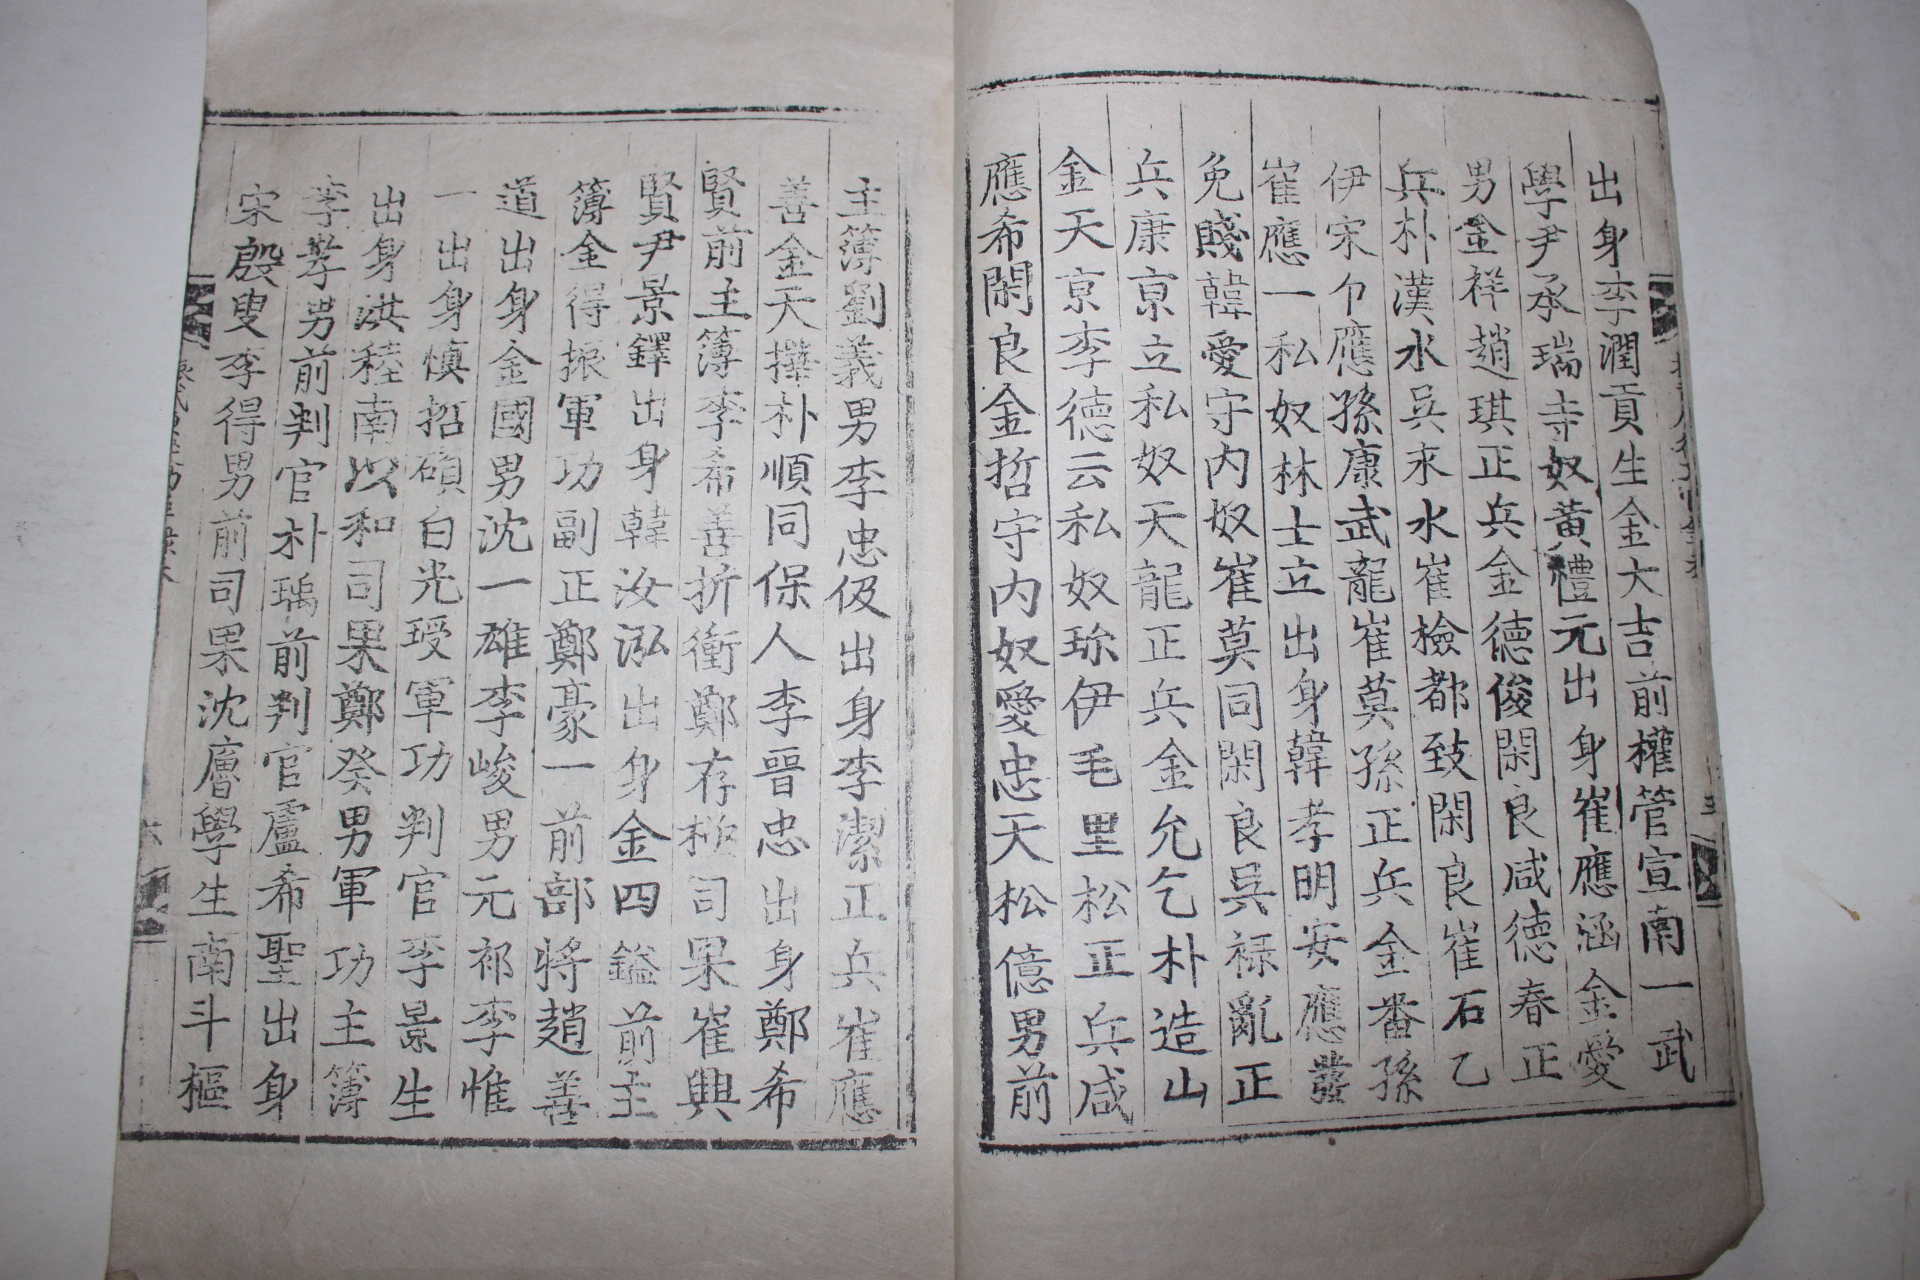 出身李潤貢生金大吉前權管宣南一武
學尹承瑞寺奴黃禮元出身崔應涵金愛
男金祥趙琪正兵金德俊閑良咸德春正
兵朴漢水吳來水崔檢都致閑良崔石乙
伊宋卩應孫康武龍崔莫孫正兵金番孫
崔應一私奴林士立出身韓孝明安應發
免賤韓愛守內奴崔莫同閑良吳祿亂正
兵康京立私奴天龍正兵金允乞朴造山
金天京李德云私奴珎伊毛里松正兵咸
應希閑良金哲守內奴愛忠天松億男前
主簿劉義男李忠伋出身李潔正兵崔應
善金天擇朴順同保人李晉忠出身鄭希
賢前主簿李希善折衝鄭存極司果崔興
賢尹景鐸出身韓汝泓出身金四鎰前主
簿金得振軍功副正鄭豪一前部將趙善
道出身金國男沈一雄李峻男元祁李惟
一出身愼招碩白光玹軍功判官李景生
出身洪稑南以和司果鄭癸男軍功主簿
李孝男前判官朴瑀前判官盧希聖出身
宋殷叟李得男前司果沈 學生南斗樞
六